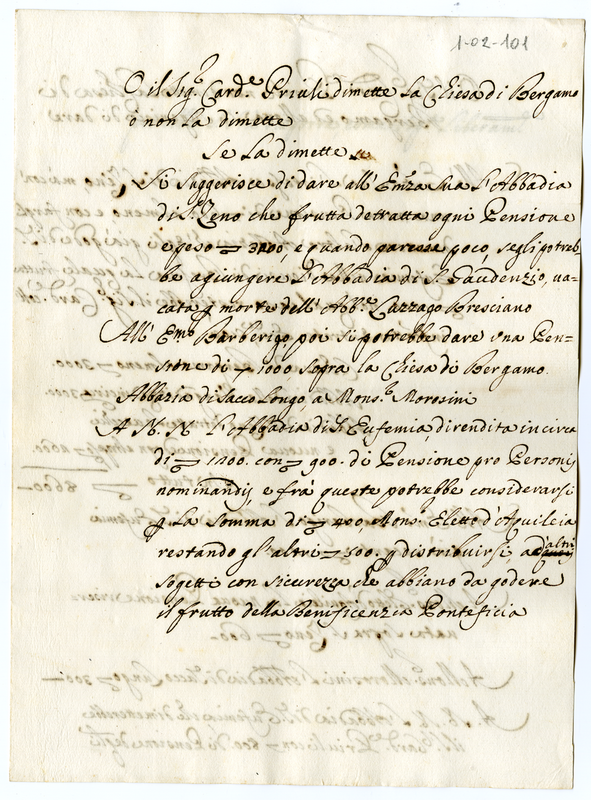 1-02-101
O il Sig.e Card.e Priuli dimette La Chiesa di Bergamo
ò non La dimette
Se La dimette
Si suggerisce di dare all' Em̃za Sua L'Abbadia
di S. Zeno che frutta detratta ogni Pensione
e peso 3200, e quando paresse poco, se gli potreb-
be agiungere L'Abbadia di S. Gaudenzio, ua-
cata p morte dell' Abb.e Cazzago Bresciano
All' Emo Barberigo, poi si potrebbe dare una Pen-
sione di 1000 sopra la Chiesa di Bergamo.
Abbazia di Sacco Longo, a Mons.r Morosini
A N. N. L'Abbadia di S. Eufemia, di rendita in circa
di 1200. con 900. di Pensione pro Personis
nominandis, e frà queste potrebbe considerarsi
p La somma di 400, Mons. Eletto d'Aquileia
restando gl'altri 500. p distribuirsi, ad altri
sogetti con sicurezza che abbiano da godere
il frutto della Benificenza Pontificia